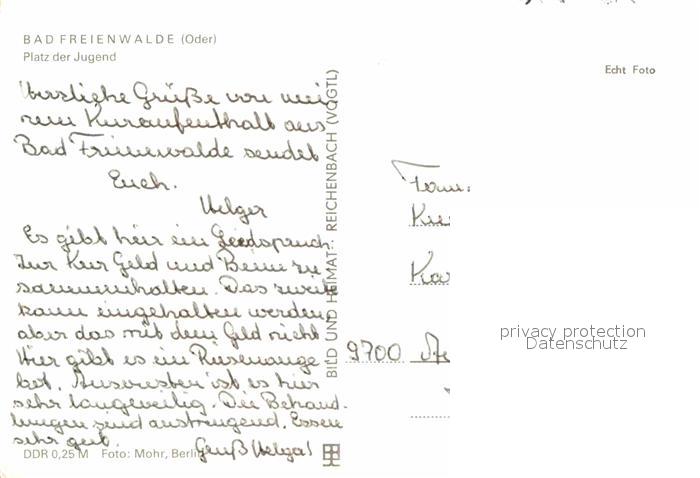 BAD FREIENWALDE (Oder)
Platz der Jugend
Echt Foto
Herzliche Grüße von mei
nem Kuraufenthalt aus
Bad Freienwalde sendet
Euch.
Helga
Es gibt hier ein Leedspruch.
Zur Kur Geld und Beine zu
sammenhalten. Das zweite
kann eingehalten werden,
aber das mit dem Geld nicht
Hier gibt es ein Riesenange
bot. Ansonsten ist es hier
sehr langweilig. Die Behand
lungen sind anstrengend. Essen
sehr gut.
Gruß Helga!
DDR 0,25 M Foto: Mohr, Berlin
BILD UND HEIMAT · REICHENBACH (VOGTL)
Fam.
9700
privacy protection
Datenschutz